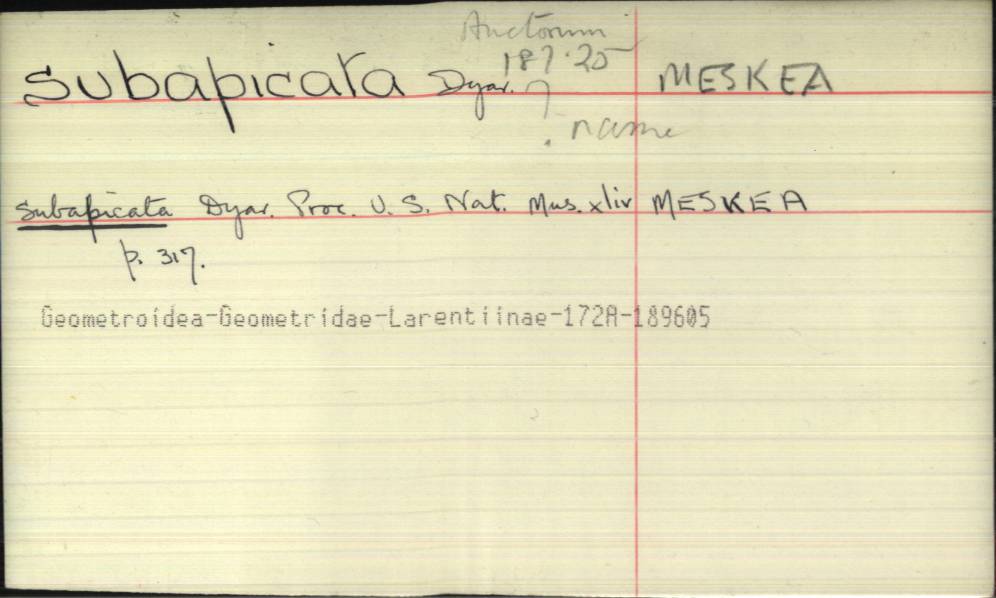 Auctorum
187.25
subapicata Dyar. ? MESKEA
. name
subapicata Dyar. Proc. U. S. Nat. Mus. xliv MESKEA
p. 317.
Geometroidea-Geometridae-Larentiinae-172A-189605